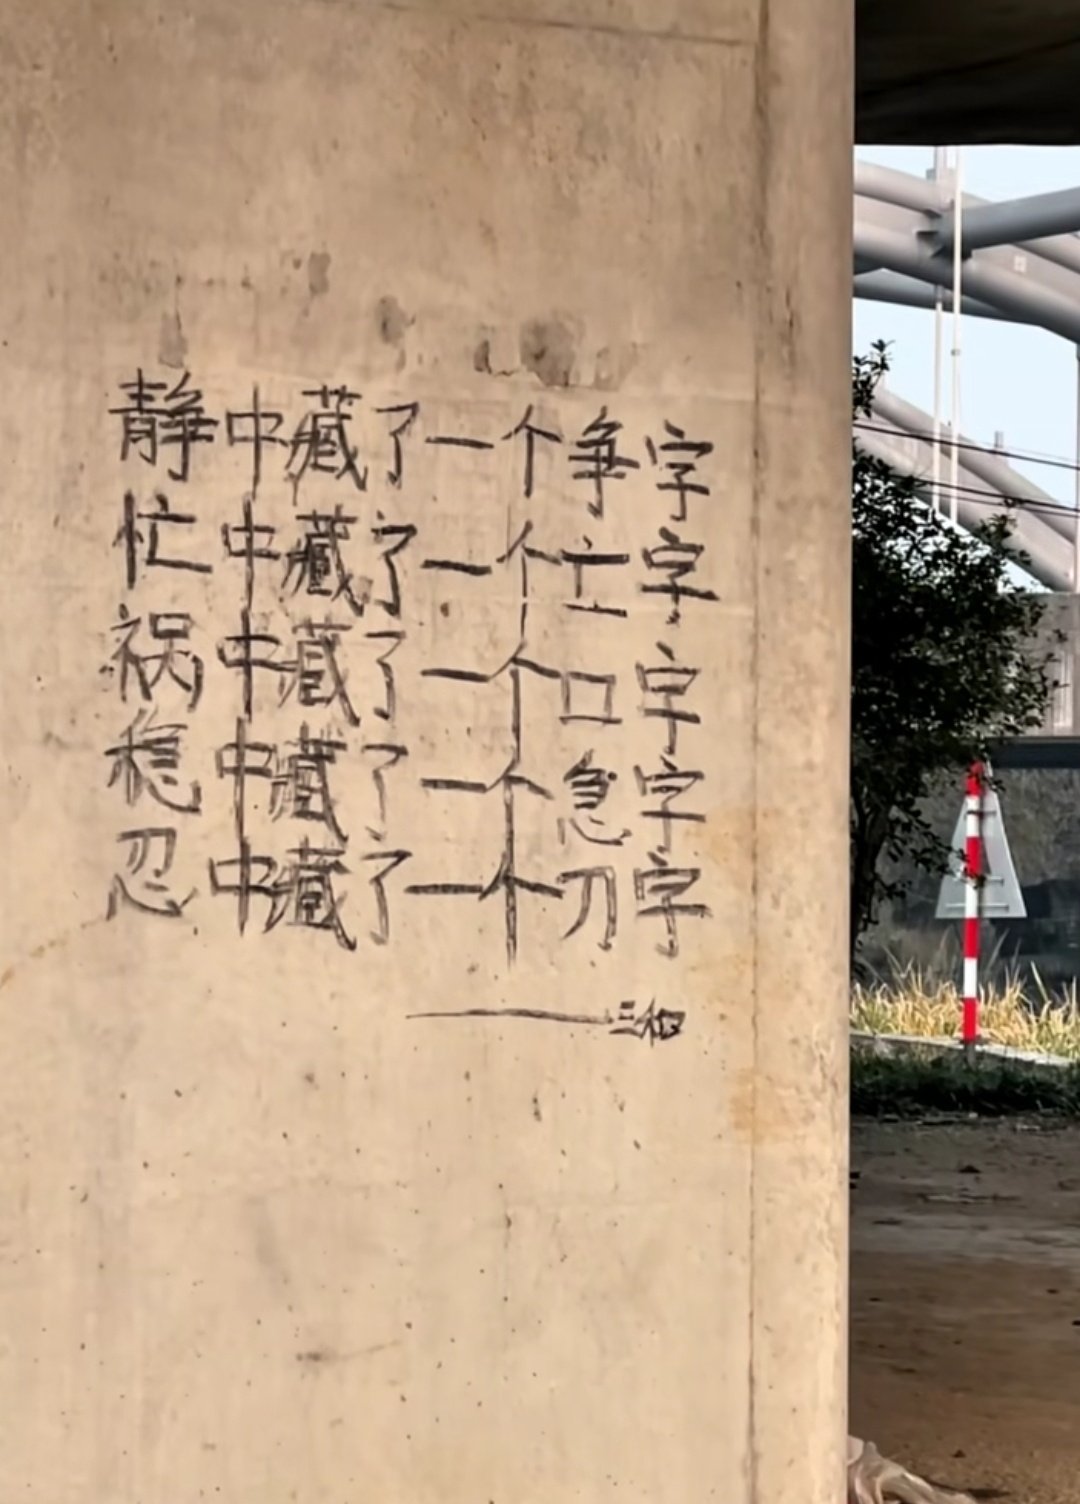 静中藏了一个争字
忙中藏了一个亡字
祸中藏了一个口字
稳中藏了一个急字
忍中藏了一个刀字
——三和